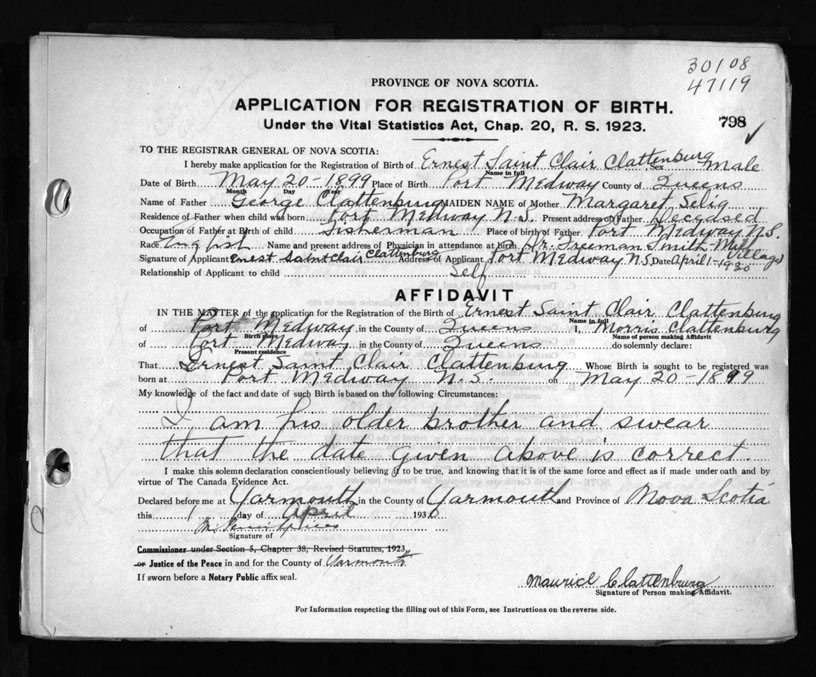 30108
47119
PROVINCE OF NOVA SCOTIA.
APPLICATION FOR REGISTRATION OF BIRTH.
Under the Vital Statistics Act, Chap. 20, R. S. 1923.
798
TO THE REGISTRAR GENERAL OF NOVA SCOTIA:
I hereby make application for the Registration of Birth of Ernest Saint Clair Clattenburg male
Name in full
Date of Birth May 20-1899 Place of Birth Port Medway County of Queens
Month Day Year
Name of Father George Clattenburg MAIDEN NAME of Mother Margaret Selig
Residence of Father when child was born Port Medway N.S. Present address of Father Deceased
Occupation of Father at Birth of child Fisherman Place of birth of Father Port Medway N.S.
Race English Name and present address of Physician in attendance at birth Dr. Freeman Smith-Mill Village
Signature of Applicant Ernest Saint Clair Clattenburg Address of Applicant Port Medway N.S. Date April 1-1930
Relationship of Applicant to child Self
AFFIDAVIT
IN THE MATTER of the application for the Registration of the Birth of Ernest Saint Clair Clattenburg
Name in full
of Port Medway in the County of Queens I, Morris Clattenburg
Birth place Name of person making Affidavit
of Port Medway in the County of Queens do solemnly declare:
Present residence
That Ernest Saint Clair Clattenburg Whose Birth is sought to be registered was
born at Port Medway N.S. on May 20-1899
My knowledge of the fact and date of such Birth is based on the following Circumstances:
I am his older brother and swear
that the date given above is correct.
I make this solemn declaration conscientiously believing it to be true, and knowing that it is of the same force and effect as if made under oath and by
virtue of The Canada Evidence Act.
Declared before me at Yarmouth in the County of Yarmouth and Province of Nova Scotia
this 1 day of April 1930
Signature of
Commissioner under Section 5, Chapter 38, Revised Statutes, 1923,
or Justice of the Peace in and for the County of Yarmouth
If sworn before a Notary Public affix seal.
Maurice Clattenburg
Signature of Person making Affidavit.
For Information respecting the filling out of this Form, see Instructions on the reverse side.